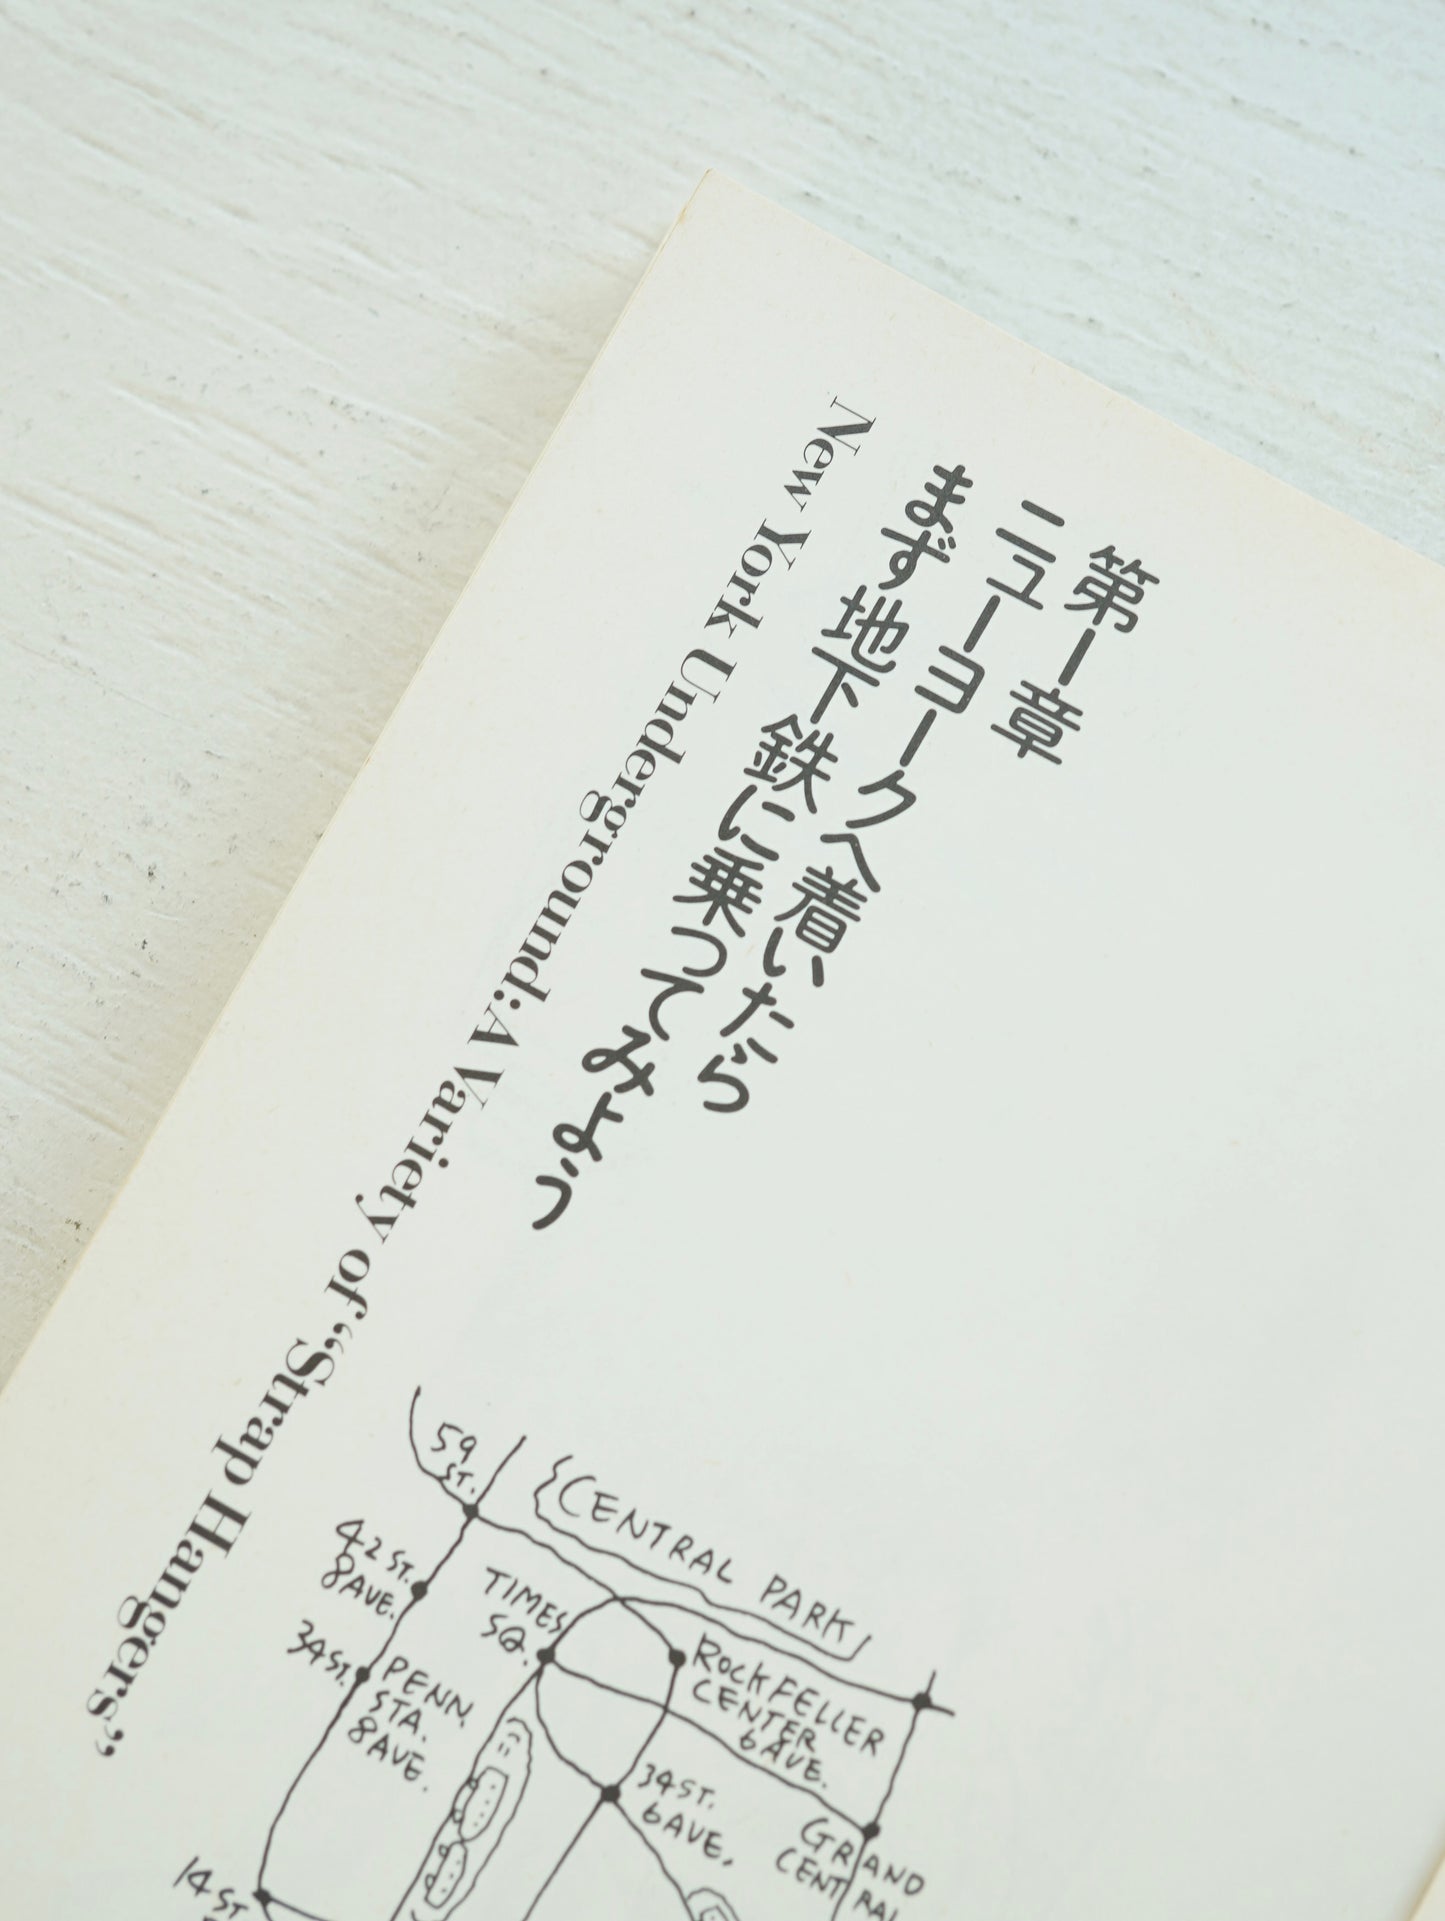 第一章
ニューヨークへ着いたら
まず地下鉄に乗ってみよう
New York Underground: A Variety of “Strap Hangers”
59
ST.
CENTRAL PARK
42 ST.
8AVE.
TIMES
SQ.
34 ST.
PENN.
STA.
8AVE.
ROCKFELLER
CENTER
6AVE.
34 ST.
6AVE.
GRAND
CENTRAL
14 ST